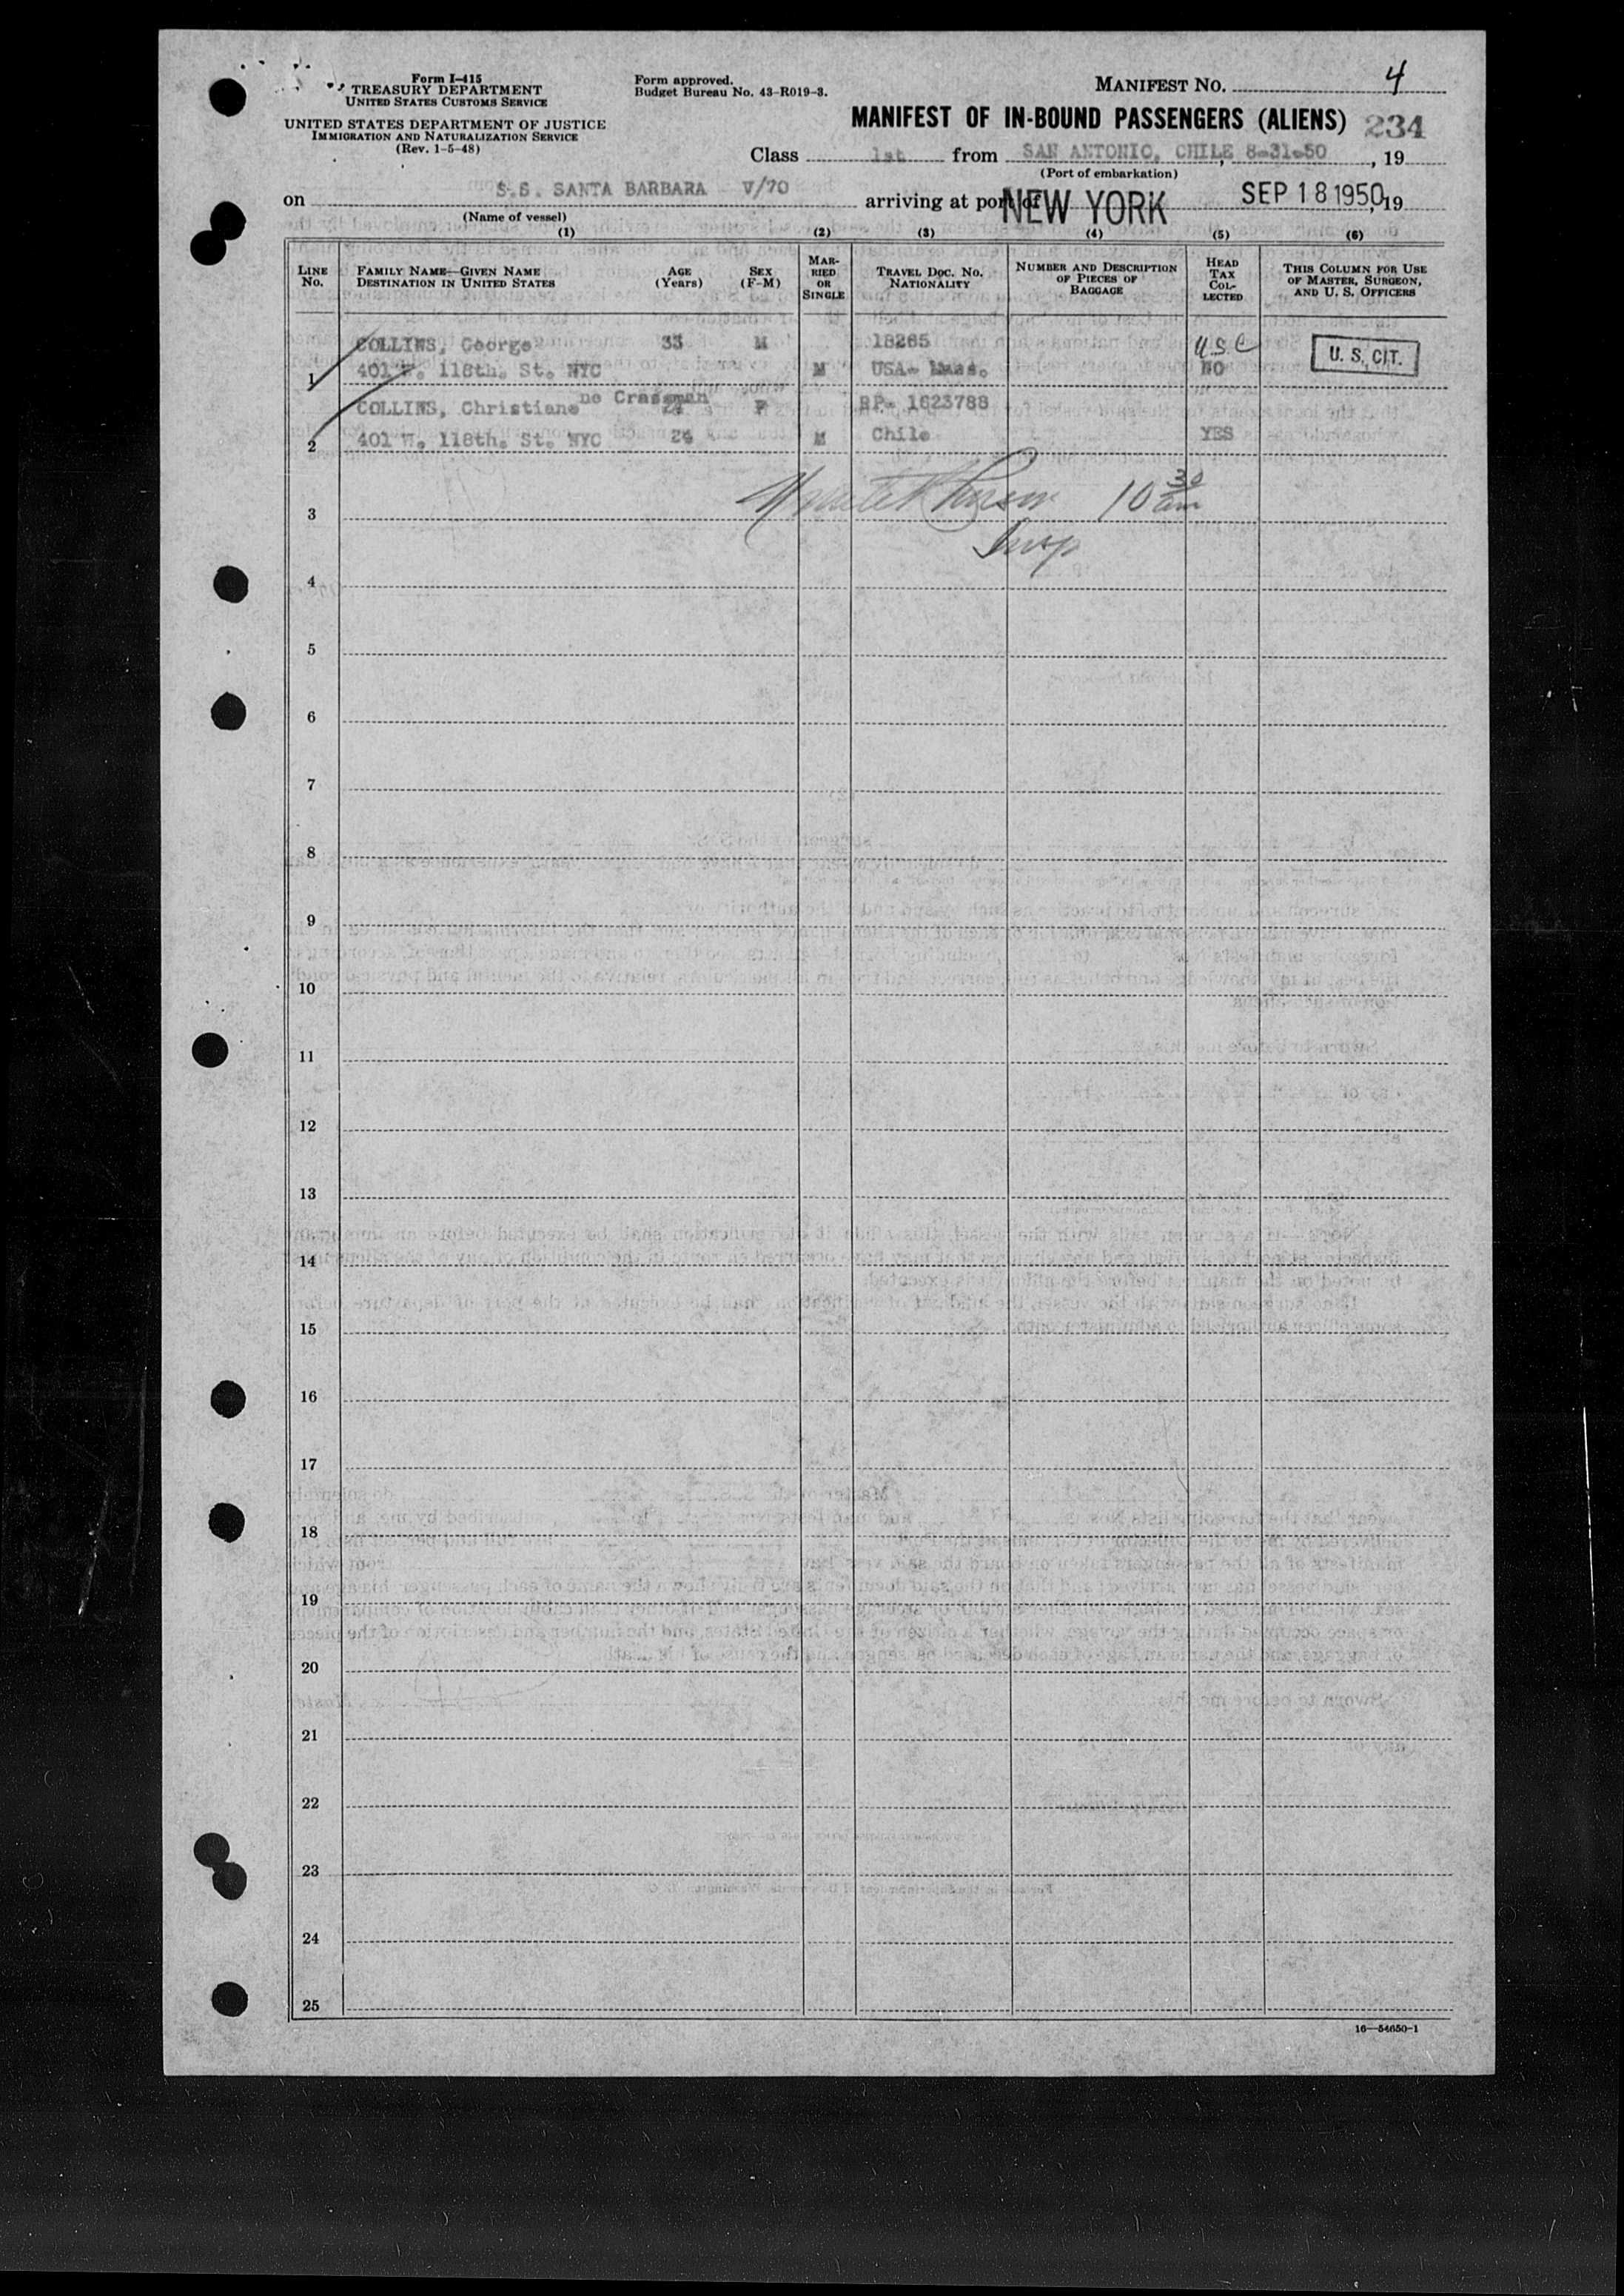 Form I-415
TREASURY DEPARTMENT
UNITED STATES CUSTOMS SERVICE
UNITED STATES DEPARTMENT OF JUSTICE
IMMIGRATION AND NATURALIZATION SERVICE
(Rev. 1-5-48)
Form approved.
Budget Bureau No. 43-R019-3.
MANIFEST NO. 4
MANIFEST OF IN-BOUND PASSENGERS (ALIENS) 234
Class 1st from SAN ANTONIO, CHILE 8-31-50, 19
(Port of embarkation)
on S.S. SANTA BARBARA V/70 arriving at port of NEW YORK SEP 18 1950, 19
(Name of vessel)
(1) (2) (3) (4) (5) (6)
LINE No. FAMILY NAME—GIVEN NAME DESTINATION IN UNITED STATES AGE (Years) SEX (F-M) MARRIED OR SINGLE TRAVEL DOC. NO. NATIONALITY NUMBER AND DESCRIPTION OF PIECES OF BAGGAGE HEAD TAX COLLECTED THIS COLUMN FOR USE OF MASTER, SURGEON, AND U. S. OFFICERS
COLLINS, George 33 M 18265 U.S.C U. S. CIT.
1 401 W. 118th. St. NYC M USA- Mass. NO
ne Crassman
COLLINS, Christiane 24 F RP- 1623788
2 401 W. 118th. St. NYC 24 M Chile YES
10 30 am
3
Insp
4
5
6
7
8
9
10
11
12
13
14
15
16
17
18
19
20
21
22
23
24
25
16—54650-1